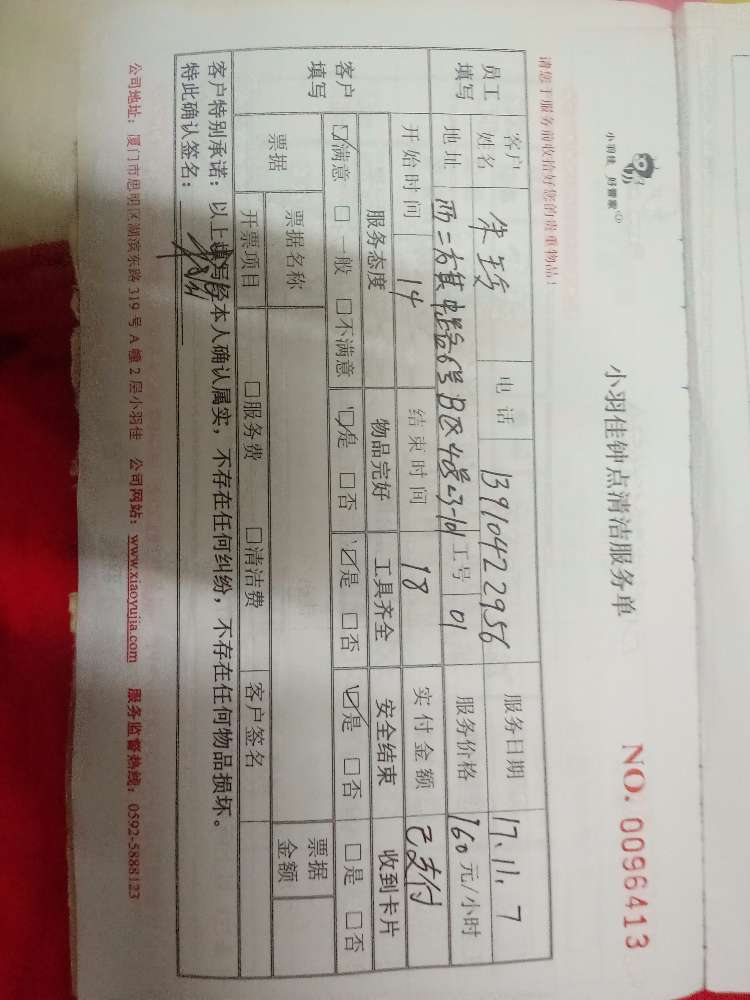 小羽佳 好管家
小羽佳钟点清洁服务单
NO. 0096413
请您于服务前收拾好您的贵重物品！
员工填写
客户姓名 朱 电话 13910422956 服务日期 17.11.7
地址 西二旗中路6号B区4号楼3-101 工号 01 服务价格 160元/小时
开始时间 14 结束时间 18 实付金额 已支付
客户填写
服务态度 物品完好 工具齐全 安全结束 收到卡片
☑满意 □一般 □不满意 ☑是 □否 ☑是 □否 ☑是 □否 □是 □否
票据 票据名称 票据金额
开票项目 □服务费 □清洁费 客户签名
客户特别承诺：以上填写经本人确认属实，不存在任何纠纷，不存在任何物品损坏。
特此确认签名：
公司地址：厦门市思明区湖滨东路 319 号 A 幢 2 层小羽佳 公司网站：www.xiaoyujia.com 服务监督热线：0592-5888123